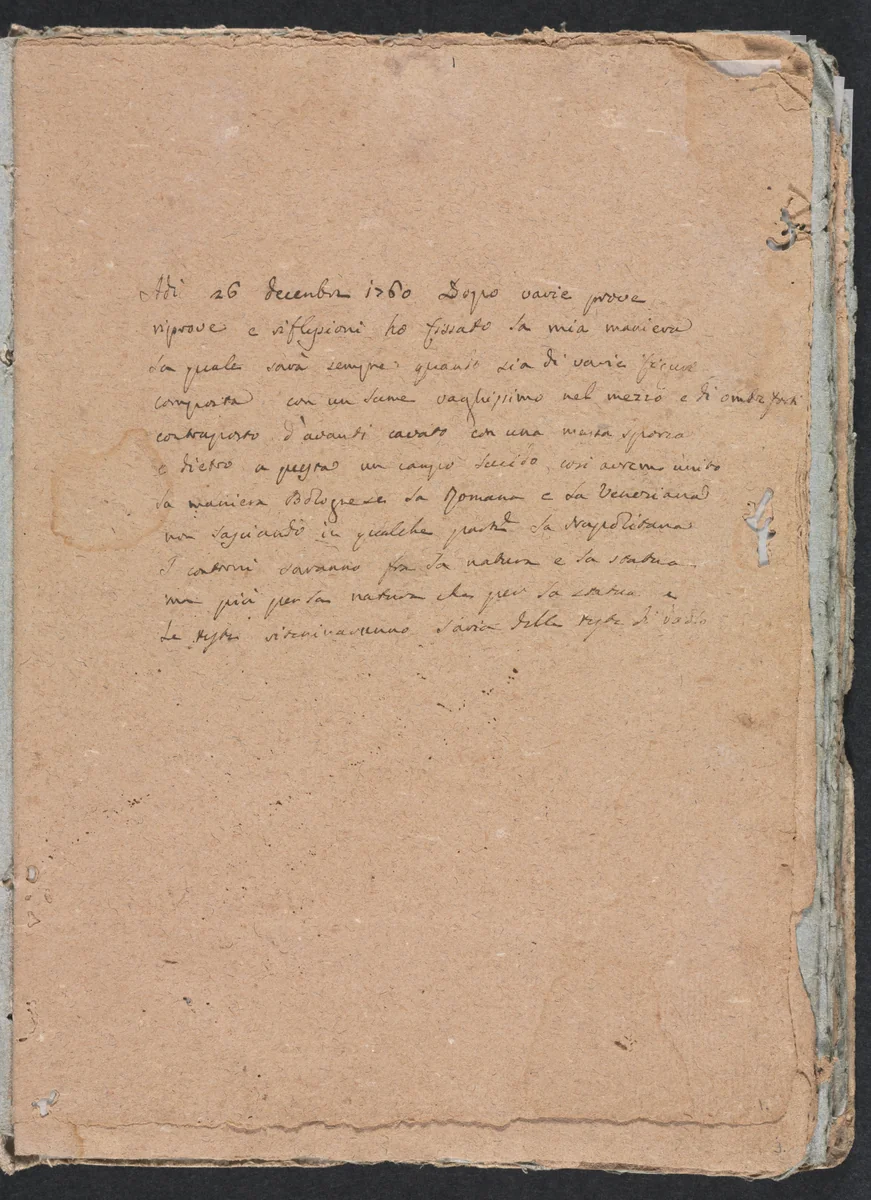 Adi 26 decembre 1760 Dopo varie prove
riprove e riflessioni ho fissato la mia maniera
la quale sarà sempre quando sia di varie figure
composta con un lume vaghissimo nel mezzo e di ombre forti
contraposto d'avanti cavato con una massa sporca
e dietro a questa un campo lucido così avremo unito
la maniera Bolognese la Romana e la Veneziana
non lasciando in qualche parte la Napolitana
I contorni saranno fra la natura e la statua
ma più per la natura che per la statua e
le teste l'aria delle teste di